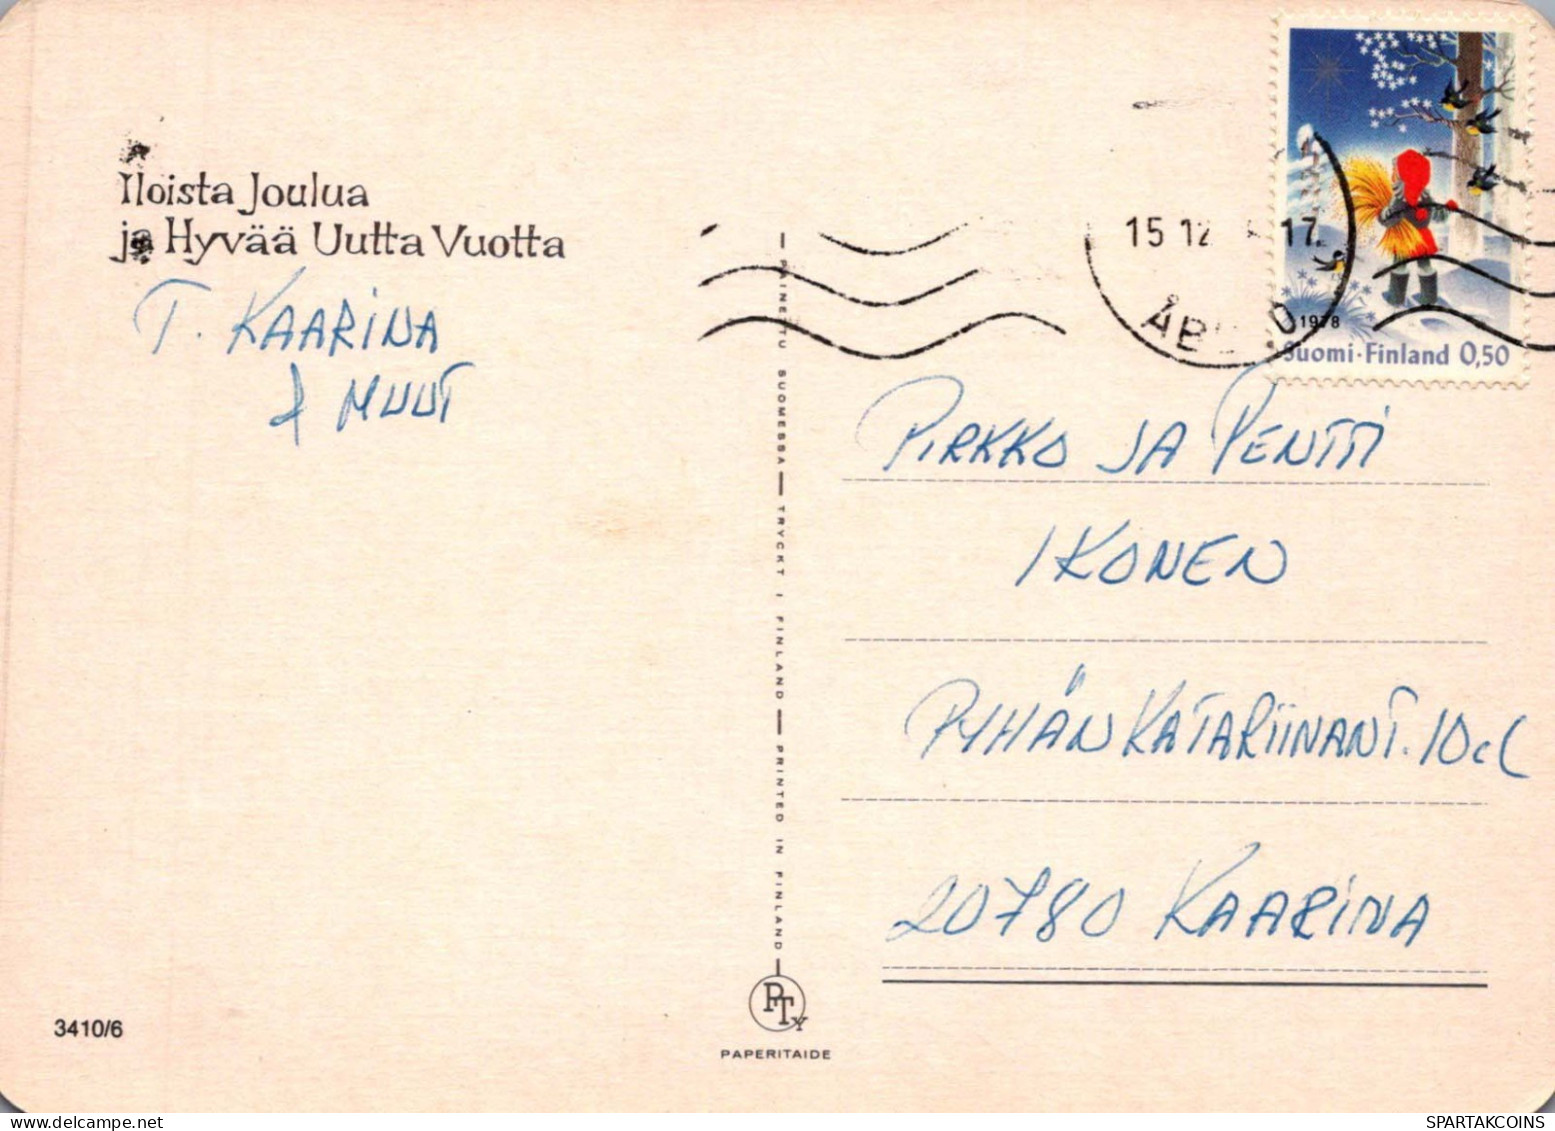 Iloista Joulua
ja Hyvää Uutta Vuotta
T. KAARINA
& MUUT
15 12 17
ÅB
1978
Suomi·Finland 0,50
PIRKKO JA PENTTI
IKONEN
PYHÄN KATARIINANT. 10
20780 KAARINA
PAINETTU SUOMESSA — TRYCKT I FINLAND — PRINTED IN FINLAND
PTy
PAPERITAIDE
3410/6
SPARTAKCOINS